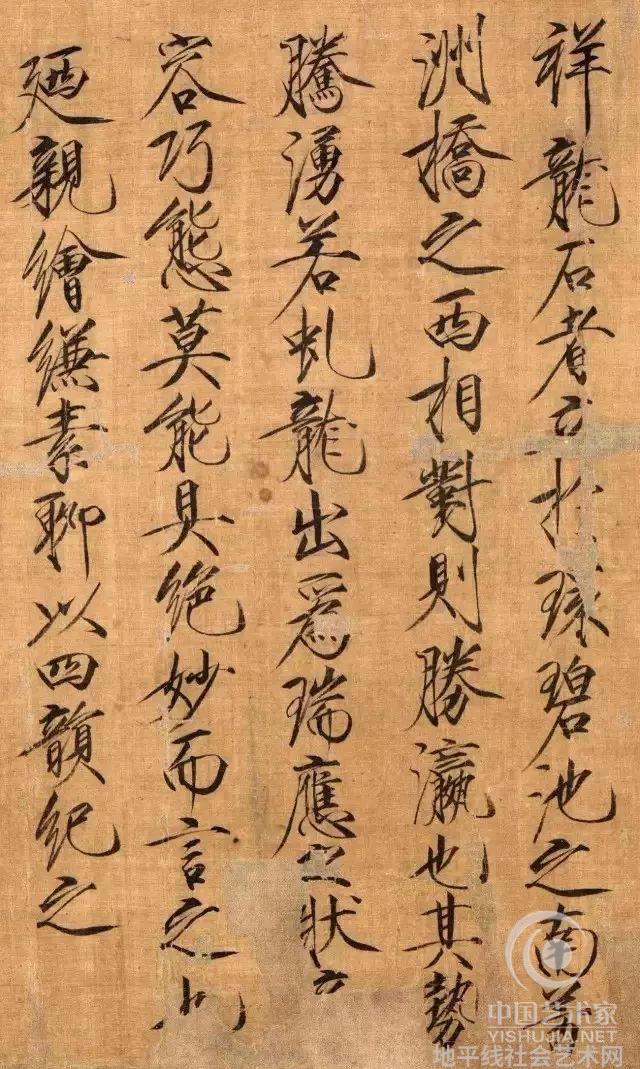 祥龍石者立於環碧池之南芳
洲橋之西相對則勝瀛也其勢
騰湧若虬龍出爲瑞應之狀奇
容巧態莫能具絕妙而言之也
廼親繪縑素聊以四韻紀之
中国艺术家
YISHUJIA.NET
地平线社会艺术网